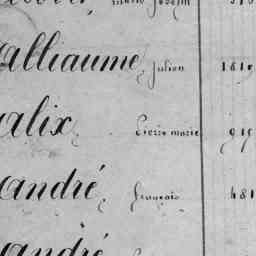 Alliaume, Julien 1810
Alix, Pierre marie 919
André, François 481
André